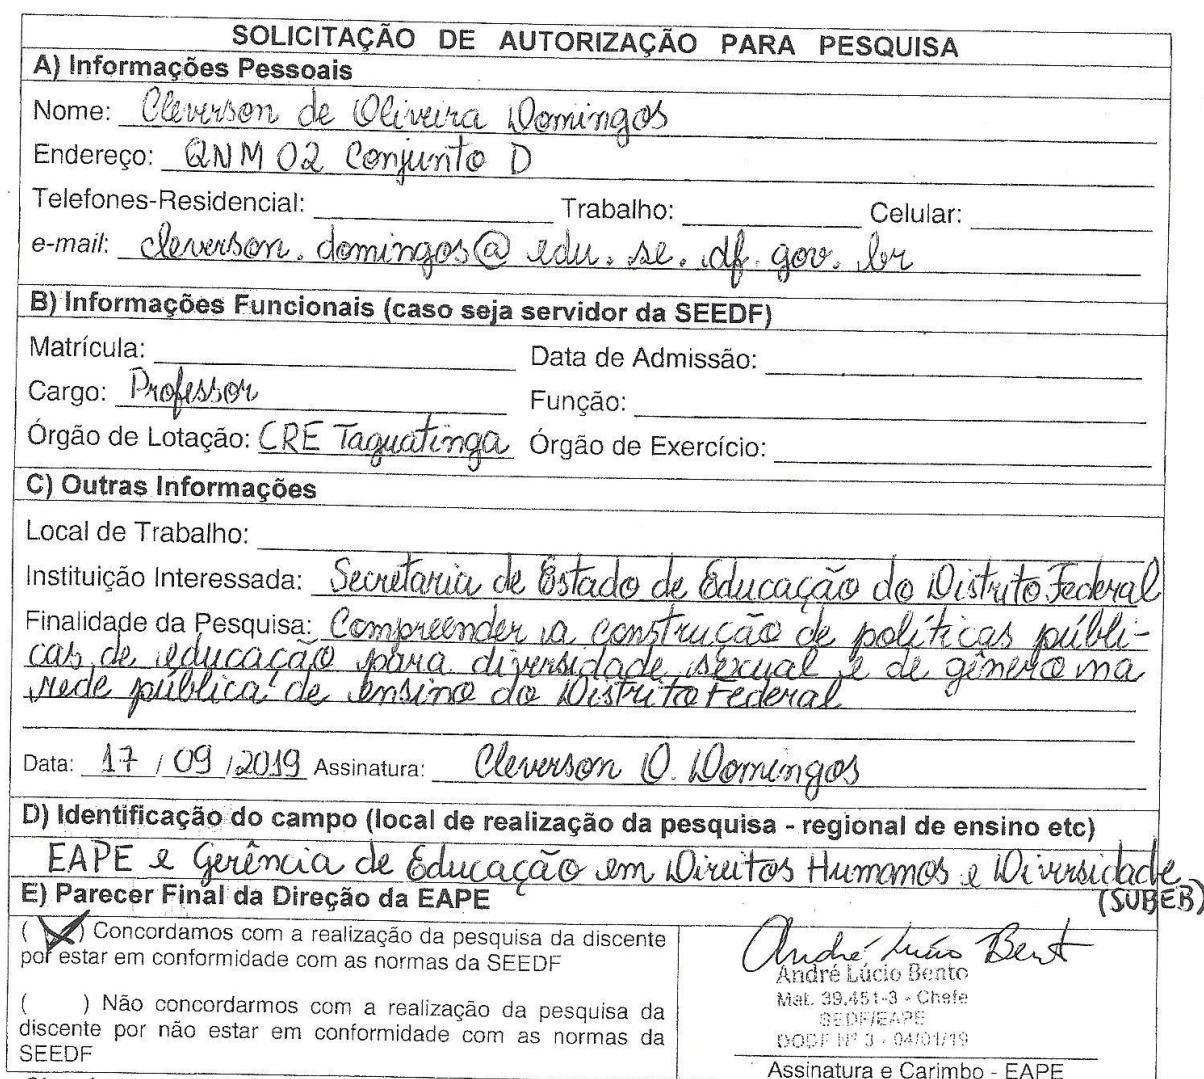 SOLICITAÇÃO DE AUTORIZAÇÃO PARA PESQUISA
A) Informações Pessoais
Nome: Cleverson de Oliveira Domingos
Endereço: QNM 02 Conjunto D
Telefones-Residencial: Trabalho: Celular:
e-mail: cleverson.domingos@edu.se.df.gov.br
B) Informações Funcionais (caso seja servidor da SEEDF)
Matrícula: Data de Admissão:
Cargo: Professor Função:
Órgão de Lotação: CRE Taguatinga Órgão de Exercício:
C) Outras Informações
Local de Trabalho:
Instituição Interessada: Secretaria de Estado de Educação do Distrito Federal
Finalidade da Pesquisa: Compreender a construção de políticas públi-
cas de educação para diversidade sexual e de gênero na
rede pública de ensino do Distrito Federal
Data: 17 / 09 / 2019 Assinatura: Cleverson O. Domingos
D) Identificação do campo (local de realização da pesquisa - regional de ensino etc)
EAPE e Gerência de Educação em Direitos Humanos e Diversidade
(SUBEB)
E) Parecer Final da Direção da EAPE
(X) Concordamos com a realização da pesquisa da discente
por estar em conformidade com as normas da SEEDF
( ) Não concordarmos com a realização da pesquisa da
discente por não estar em conformidade com as normas da
SEEDF
André Lúcio Bento
André Lúcio Bento
Mat. 39.451-3 - Chefe
SEDF/EAPE
DODF Nº 3 - 04/01/19
Assinatura e Carimbo - EAPE